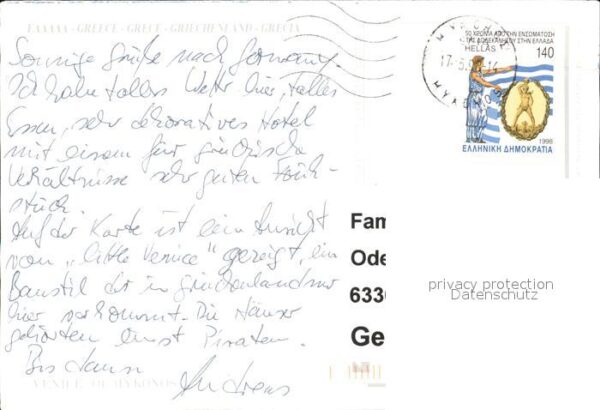 ΕΛΛΑΔΑ - GREECE - GRECE - GRIECHENLAND - GRECIA
Sonnige Grüße nach Germany.
Ich habe tolles Wetter hier, tolles
Essen, sehr dekoratives Hotel
mit einem für griechische
Verhältnisse sehr guten Früh-
stück.
Auf der Karte ist eine Ansicht
von "little Venice" gezeigt, ein
Baustil der in Griechenland nur
hier vorkommt. Die Häuser
gehörten einst Piraten.
Bis dann
Andreas
VENICE OF MYKONOS
50 ΧΡΟΝΙΑ ΑΠΟ ΤΗΝ ΕΝΣΩΜΑΤΩΣΗ
ΤΗΣ ΔΩΔΕΚΑΝΗΣΟΥ ΣΤΗΝ ΕΛΛΑΔΑ
HELLAS 140
1998
ΕΛΛΗΝΙΚΗ ΔΗΜΟΚΡΑΤΙΑ
ΜΥΚΟΝΟΣ
Fam
Ode
633
Ge
privacy protection
Datenschutz